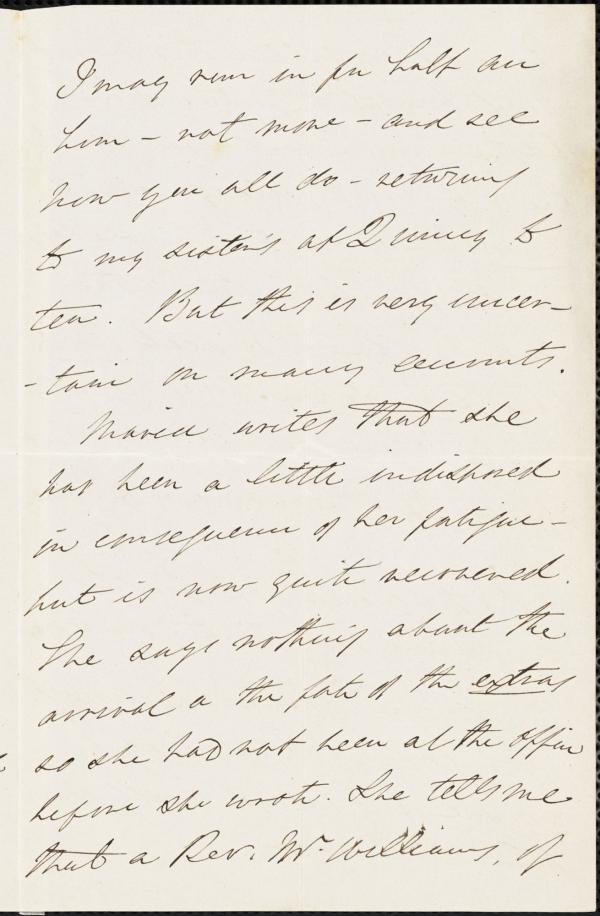 I may run in for half an
hour - not more - and see
how you all do - returning
to my sister's at Quincy to
tea. But this is very uncer-
-tain on many accounts.
Maria writes that she
has been a little indisposed
in consequence of her fatigue -
but is now quite recovered.
She says nothing about the
arrival or the fate of the extras
so she had not been at the office
before she wrote. She tells me
that a Rev. Mr. Williams, of